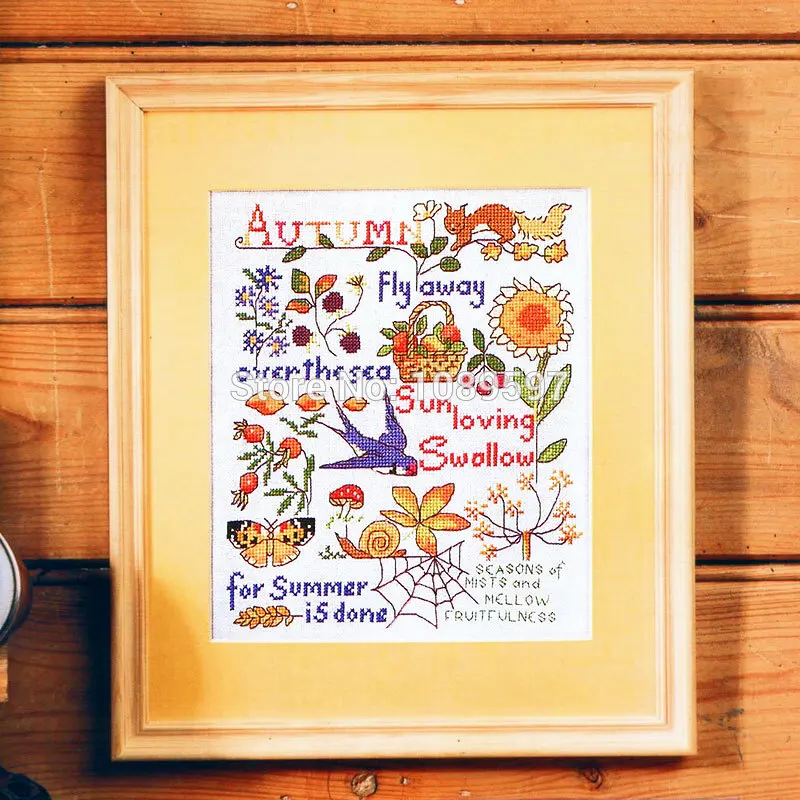 AUTUMN
Fly away
over the sea
Store No: 1089597
Sun
loving
Swallow
for Summer
is done
SEASONS of
MISTS and
MELLOW
FRUITFULNESS